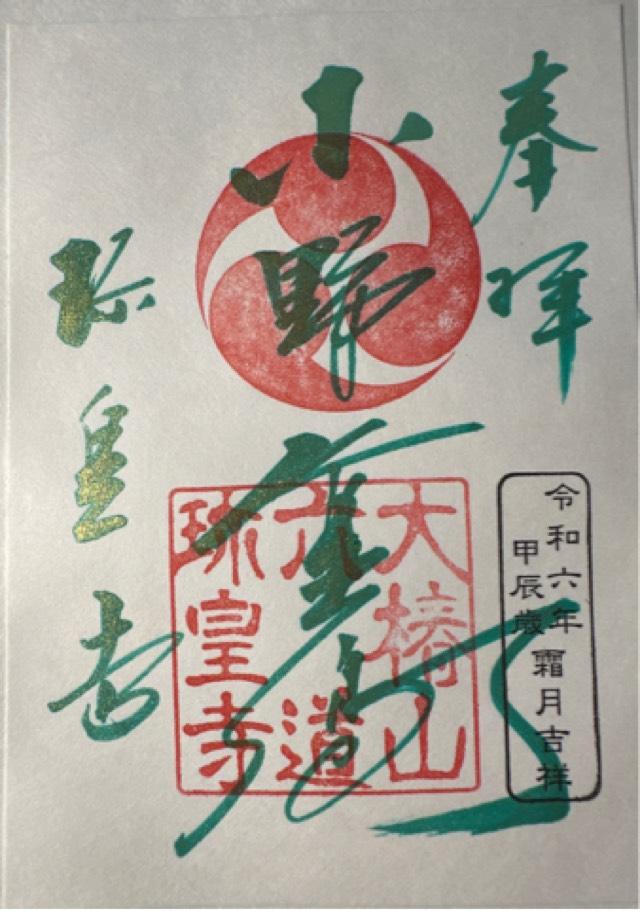 奉拝
小野篁
珍皇寺
大椿山
六道
珍皇寺
令和六年
甲辰歳
霜月吉祥